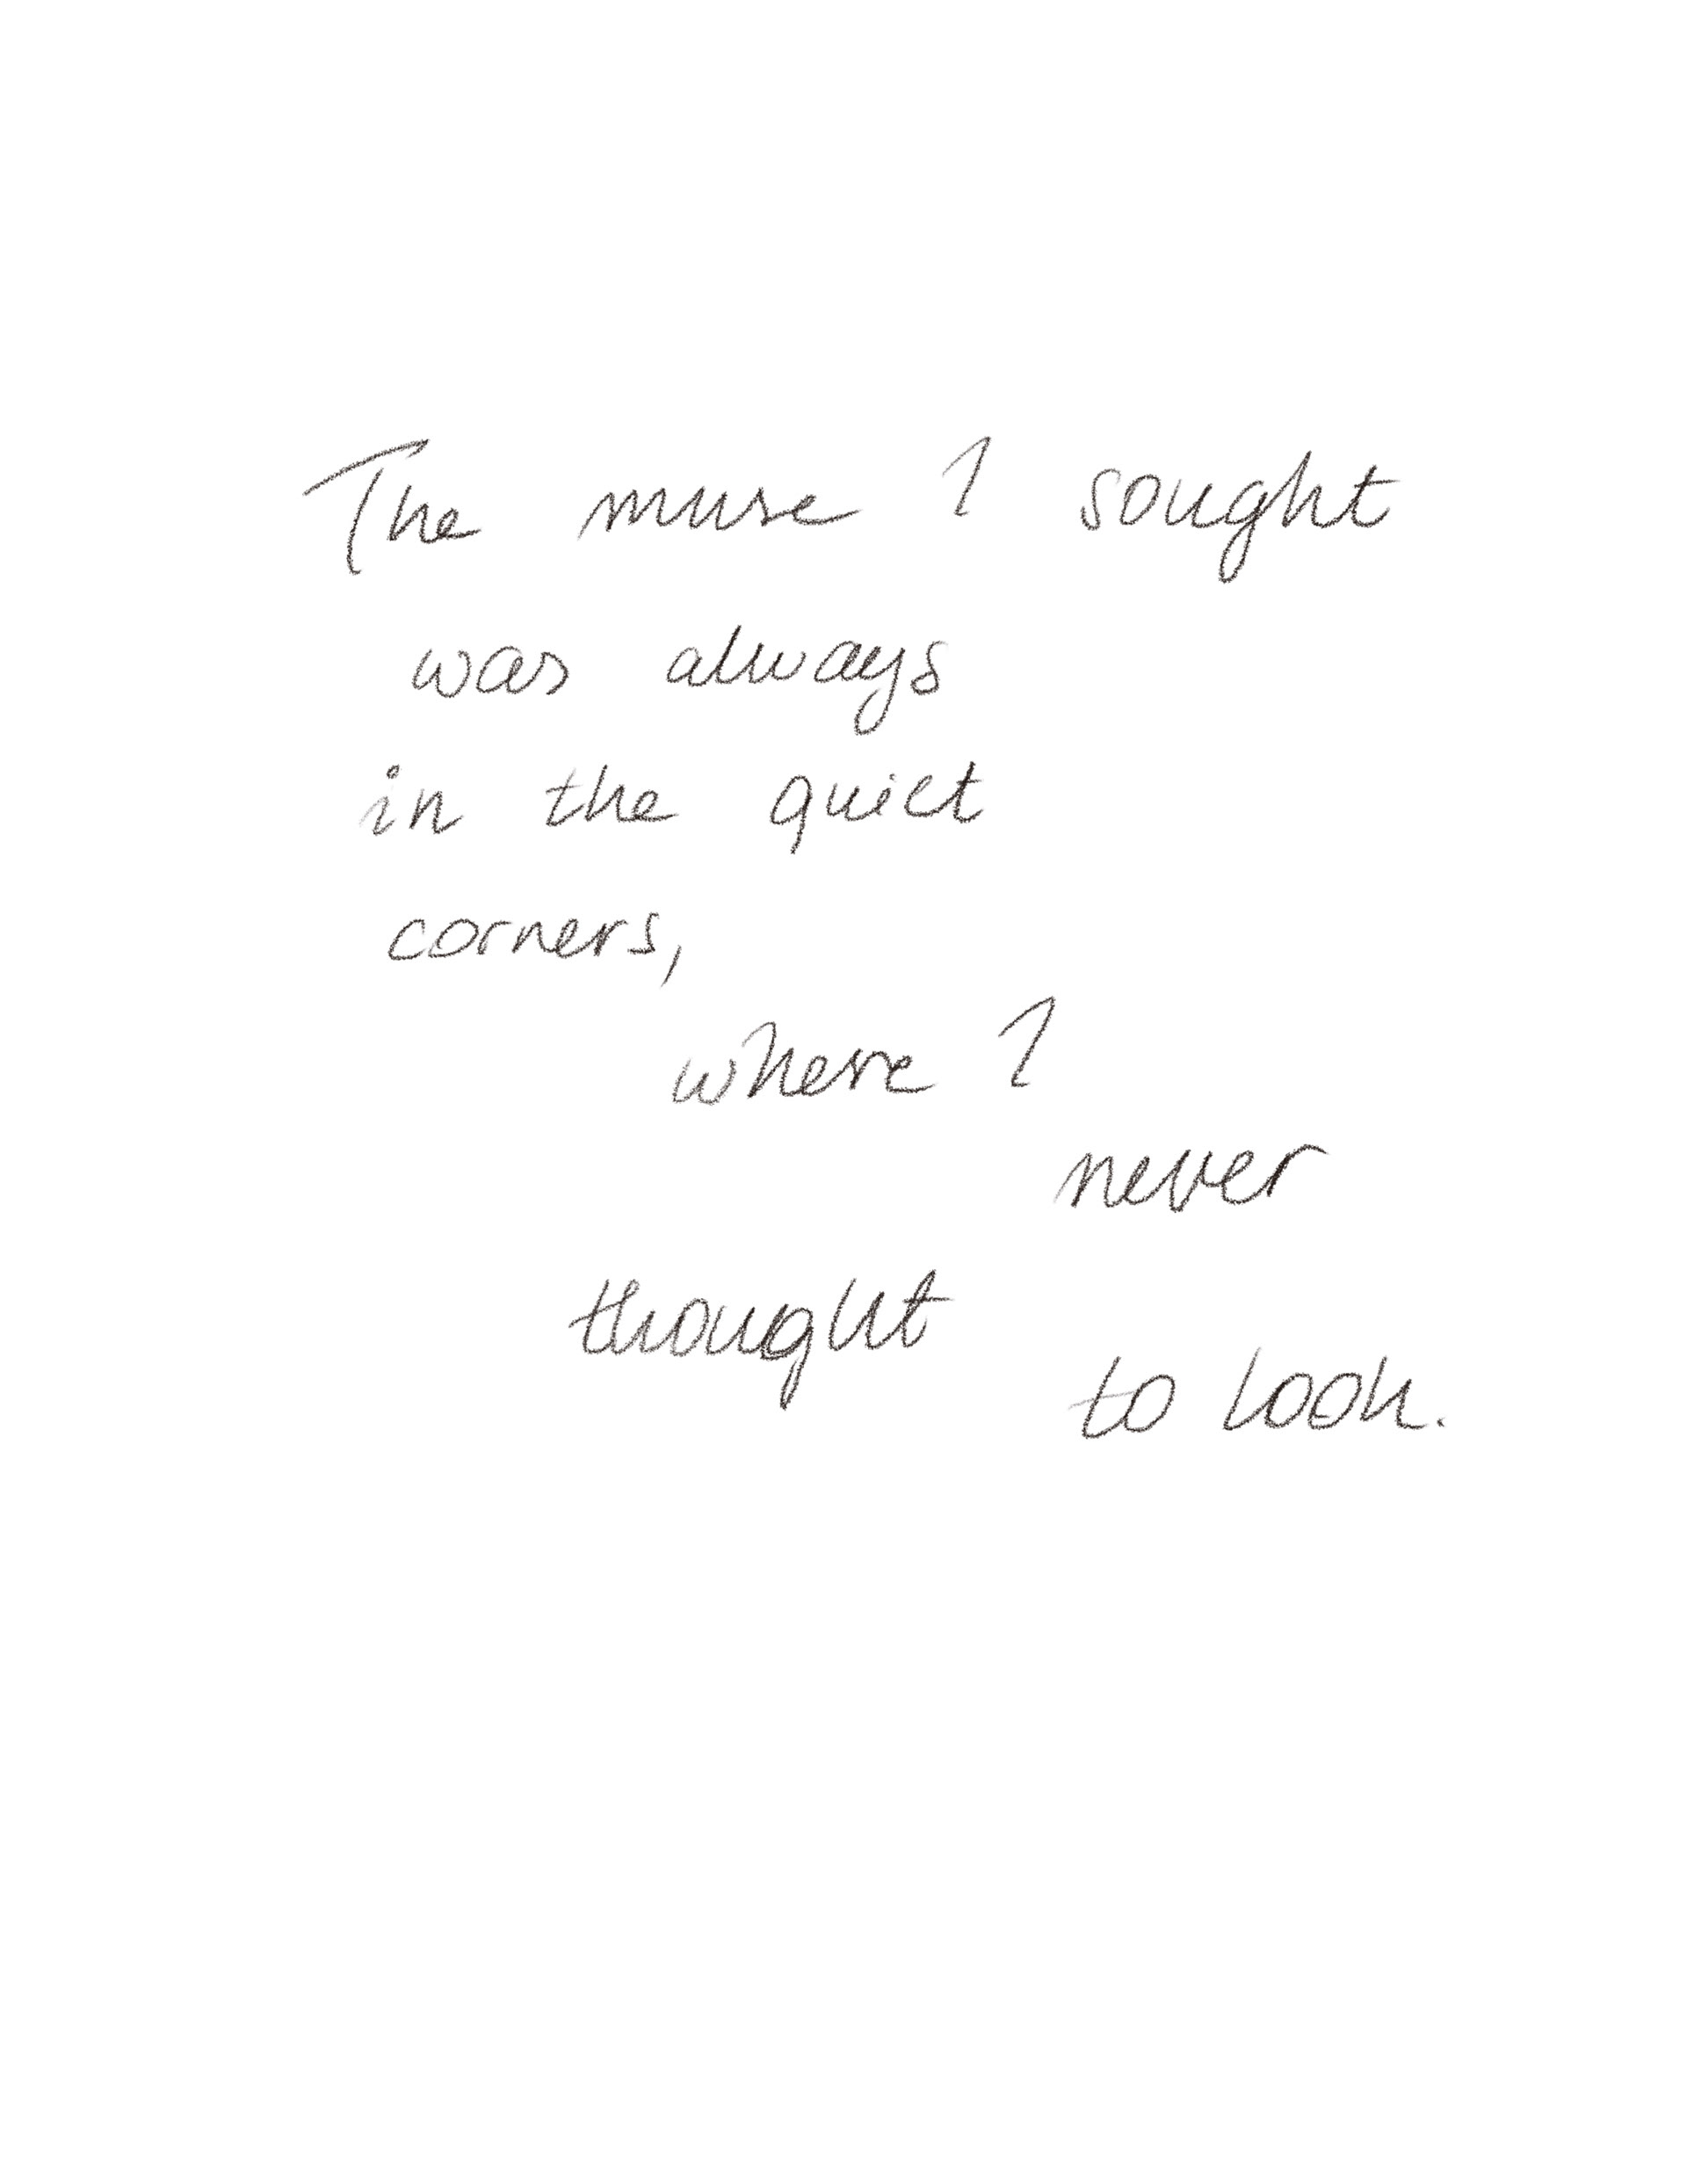 The muse I sought
was always
in the quiet
corners,
where I
never
thought
to look.